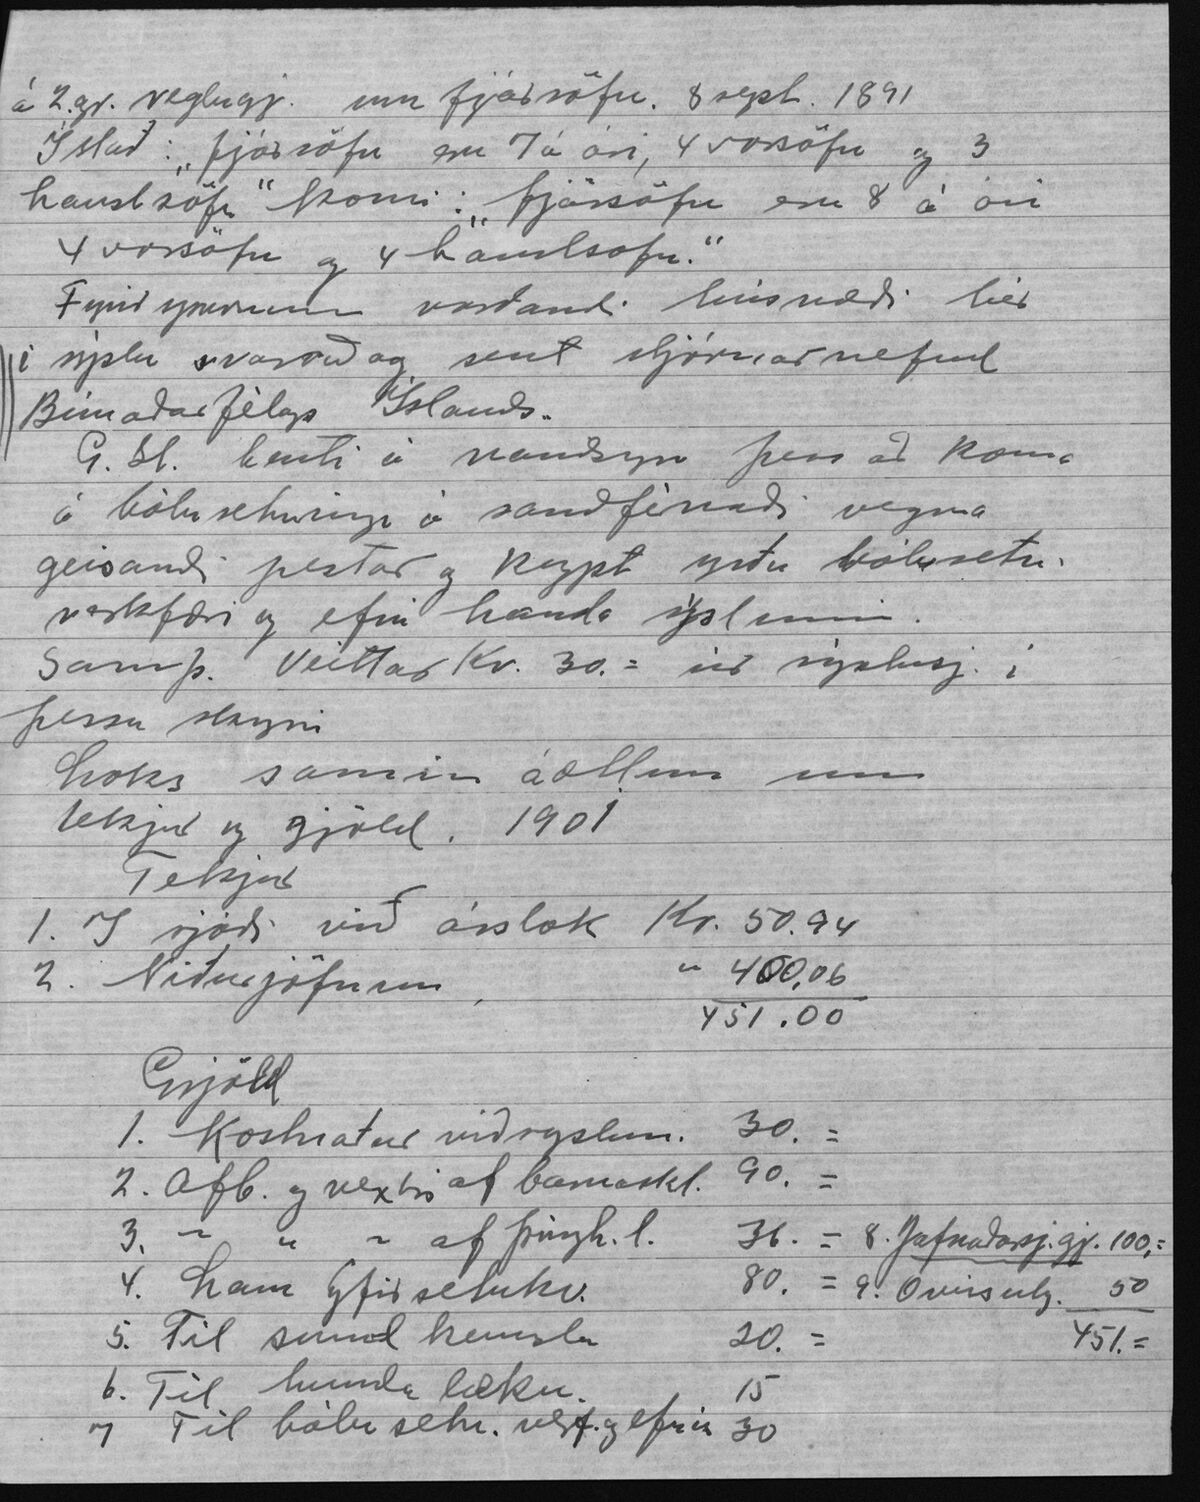 á 2.gr. reglugj. um fjársöfn. 8 sept. 1891
Í stað: „fjársöfn eru 7 á ári, 4 vorsöfn og 3
haustsöfn" komi: „fjársöfn eru 8 á ári
4 vorsöfn og 4 haustsöfn."
Fyrirspurnum varðandi húsnæði hér
í sýslu svarað og sent stjórnarnefnd
Búnaðarfélags Íslands.
G. Sl. benti á nauðsyn þess að koma
á bólusetningu á sauðfénaði vegna
geisandi pestar og keypt yrðu bólusetn.
verkfæri og efni handa sýslunni.
Samþ. Veittar Kr. 30.= úr sýslusj. í
þessu skyni
Loks samin áætlun um
tekjur og gjöld. 1901
Tekjur
1. Í sjóði við árslok Kr. 50.94
2. Niðurjöfnun " 400,06
451.00
Gjöld
1. Kostnaður við sýslun. 30. =
2. Afb. og vextir af barnaskl. 90. =
3. " " " af þingh. l. 36. = 8. Jafnaðarsj.gj. 100,=
4. Laun yfirsetukv. 80. = 9. Óviss útg. 50
5. Til sundkennslu 20. = 451.=
6. Til hundalækn. 15
7 Til bólusetn. verkf. og efnis 30